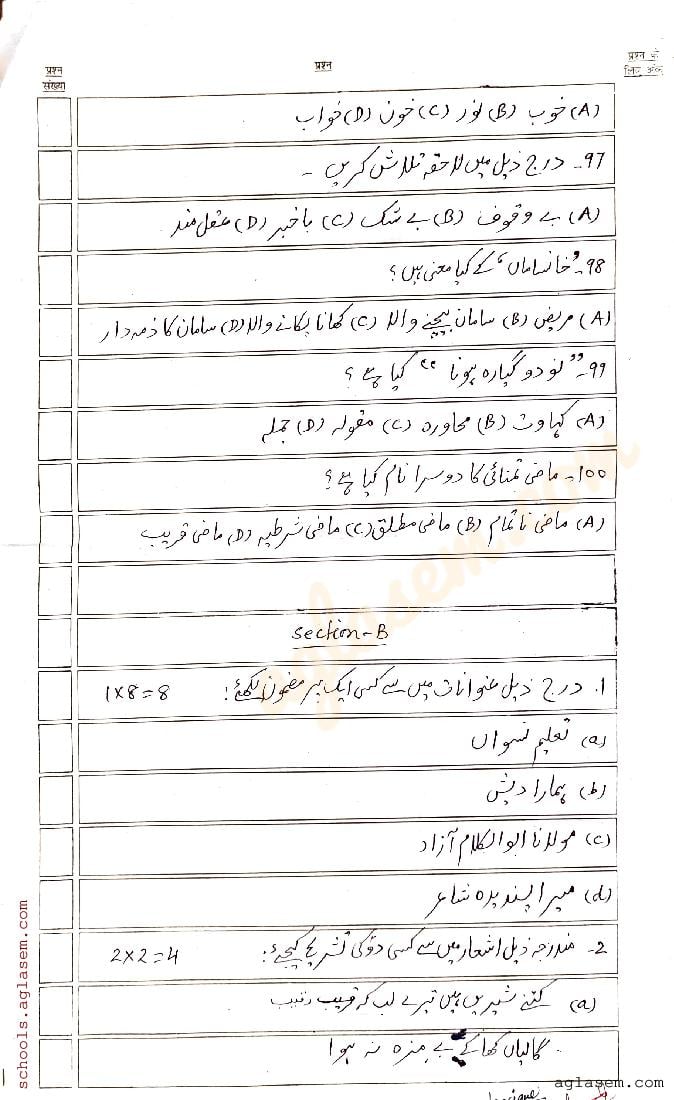 प्रश्न
संख्या
प्रश्न
प्रश्न के
लिए अंक
(A) خوب (B) نور (C) خون (D) خواب
97۔ درج ذیل میں لاحقہ تلاش کریں ۔
(A) بے وقوف (B) بے شک (C) باخبر (D) عقل مند
98۔ ’خانساماں‘ کے کیا معنی ہیں؟
(A) مریض (B) سامان بیچنے والا (C) کھانا پکانے والا (D) سامان کا ذمہ دار
99۔ ”نو دو گیارہ ہونا“ کیا ہے؟
(A) کہاوت (B) محاورہ (C) مقولہ (D) جملہ
100۔ ماضی تمنائی کا دوسرا نام کیا ہے؟
(A) ماضی ناتمام (B) ماضی مطلق (C) ماضی شرطیہ (D) ماضی قریب
Section-B
1. درج ذیل عنوانات میں سے کسی ایک پر مضمون لکھئے: 1×8=8
(a) تعلیم نسواں
(b) ہمارا دیش
(c) مولانا ابوالکلام آزاد
(d) میرا پسندیدہ شاعر
2۔ مندرجہ ذیل اشعار میں سے کسی دو کی تشریح کیجئے: 2×2=4
(a) کتنے شیریں ہیں تیرے لب کہ رقیب
گالیاں کھا کے بے مزہ نہ ہوا
schools.aglasem.com
aglasem.com
aglasem.com